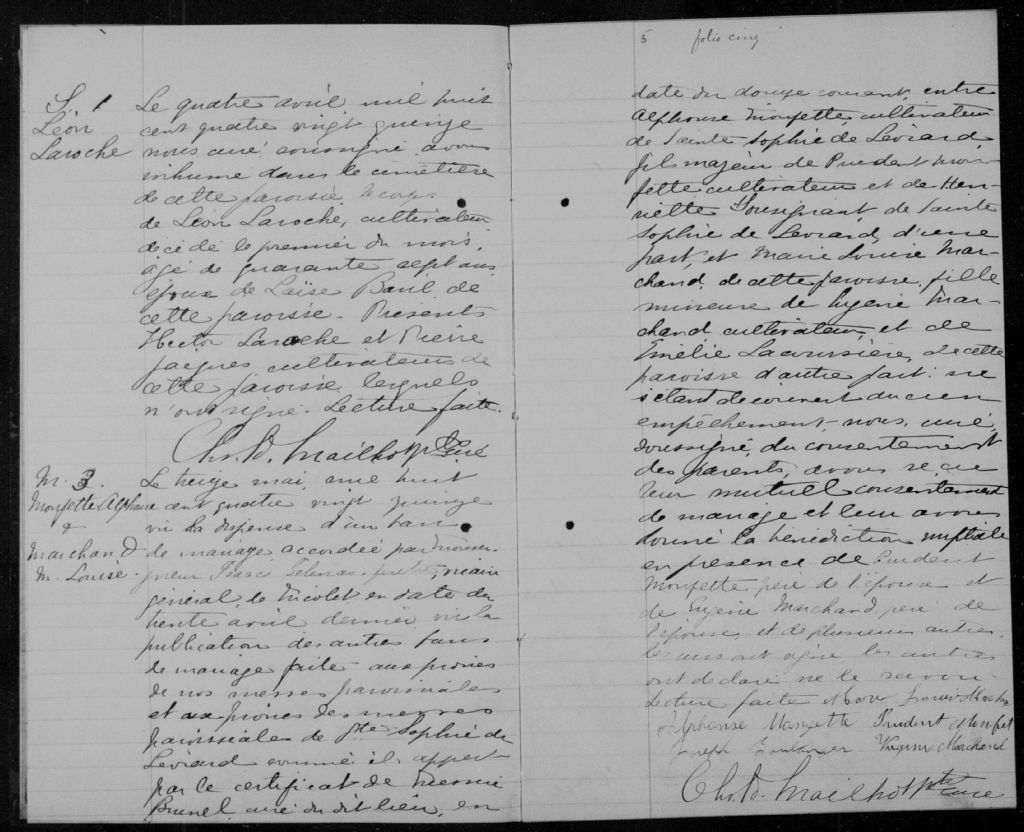 S. 1
Léon
Laroche
Le quatre avril mil huit
cent quatre vingt quinze
nous curé soussigné avons
inhumé dans le cimetière
de cette paroisse le corps
de Léon Laroche, cultivateur
décédé le premier du mois,
âgé de quarante sept ans
époux de Laïse Baril de
cette paroisse. Présents
Hector Laroche et Pierre
Jacques cultivateurs de
cette paroisse lesquels
n'ont signé. Lecture faite.
Chs. D. Mailhot Ptre Curé
M. 3.
Monfette Alphonse
&
Marchand
M. Louise.
Le treize mai, mil huit
cent quatre vingt quinze
vu la dispense d'un ban
de mariage accordée par Monsei-
gneur Isaac Gélinas prêtre, vicaire
général, de Nicolet en date du
trente avril dernier, vu la
publication des autres bans
de mariage faite aux prônes
de nos messes paroissiales
et aux prônes des messes
paroissiales de Ste Sophie de
Lévrard comme il appert
par le certificat de Messire
Brunel curé du dit lieu, en
5 folio cinq
date du douze courant, entre
Alphonse Monfette cultivateur
de Sainte Sophie de Lévrard
fils majeur de Prudent Mon-
fette cultivateur et de Hen-
riette Tousignant de Sainte
Sophie de Lévrard, d'une
part, et Marie Louise Mar-
chand, de cette paroisse, fille
mineure de Eugène Mar-
chand cultivateur, et de
Emélie Lacoursière, de cette
paroisse d'autre part: ne
s'étant découvert aucun
empêchement, nous, curé,
soussigné, du consentement
des parents, avons reçu
leur mutuel consentement
de mariage et leur avons
donné la bénédiction nuptiale
en présence de Prudent
Monfette père de l'époux et
de Eugène Marchand, père de
l'épouse, et de plusieurs autres.
les uns ont signé les autres
ont déclaré ne le savoir.
Lecture faite Marie Louise
Alphonse Monfette Prudent Monfet
Joseph Virginie Marchand
Chs. D. Mailhot Ptre Curé